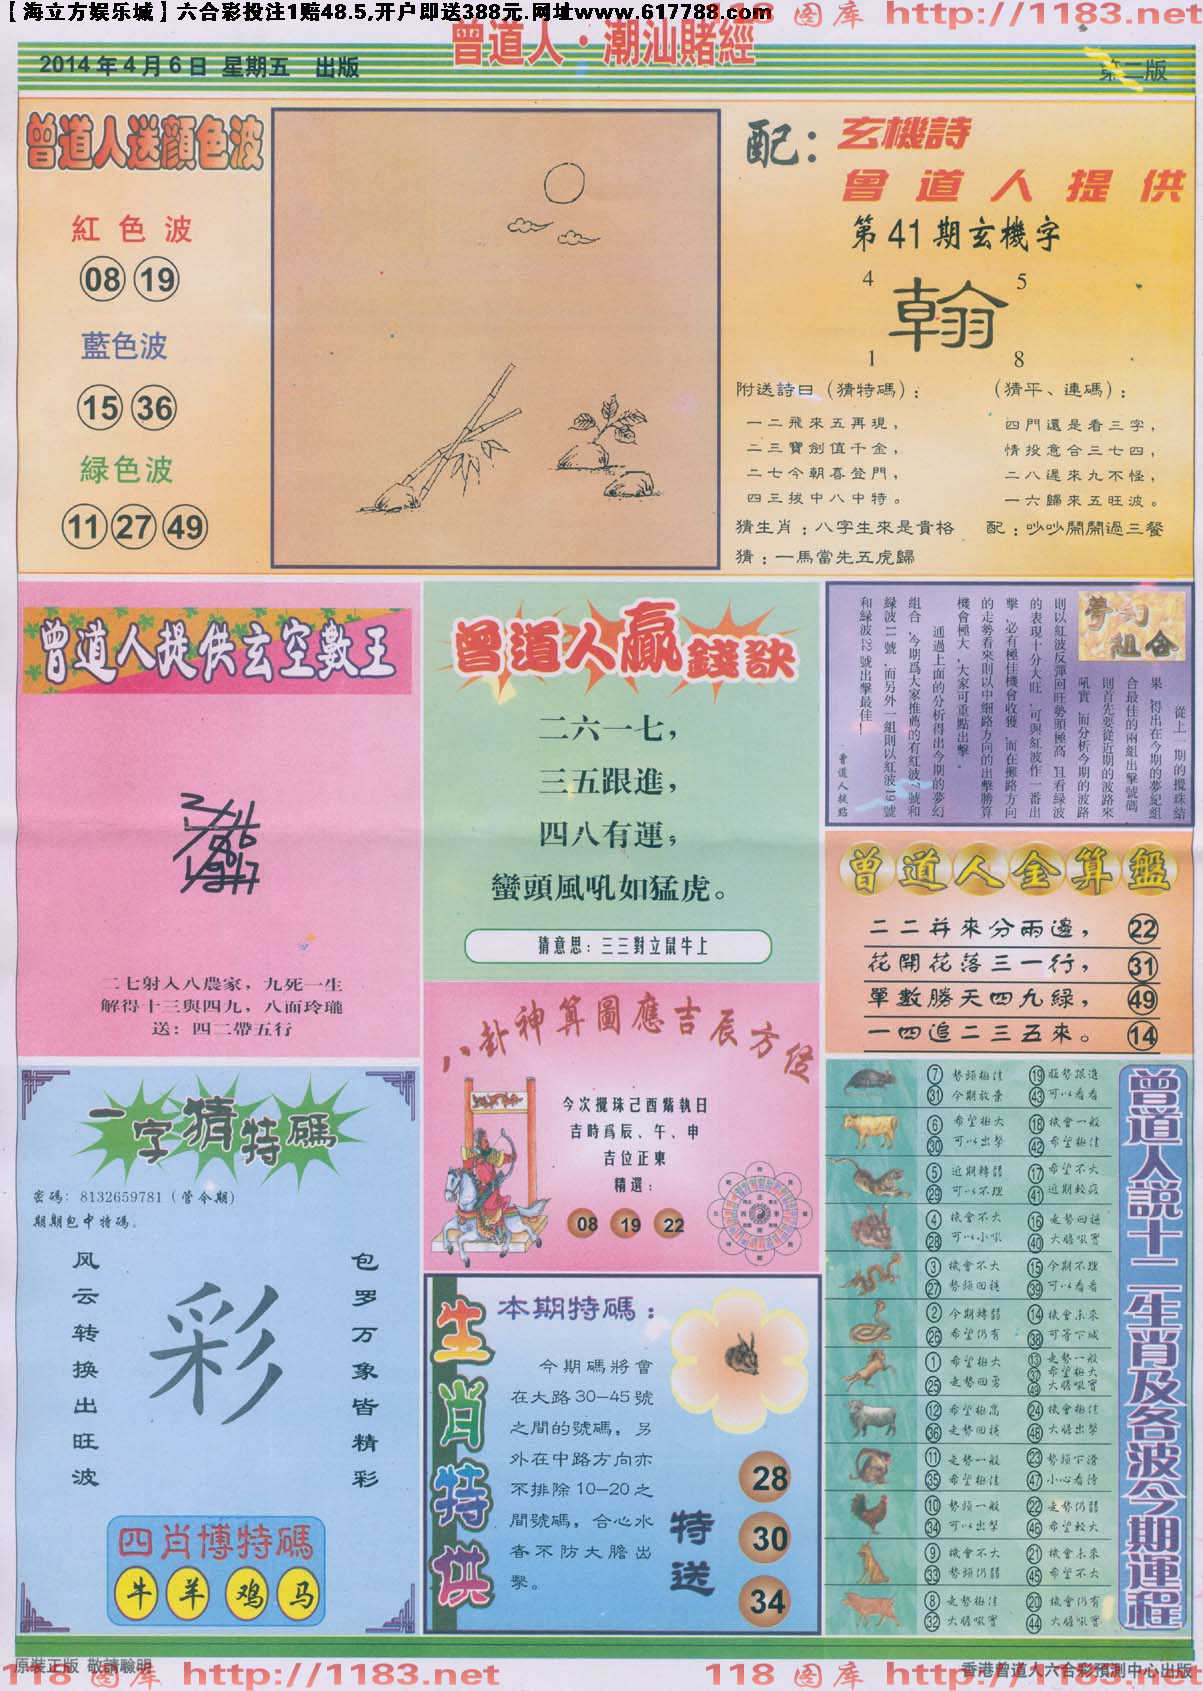 【海立方娱乐城】六合彩投注1赔48.5,开户即送388元.网址www.617788.com
118 图库 http://1183.net
曾道人·潮汕賭經
2014年4月6日 星期五 出版
第二版
曾道人送顏色波
紅色波
08 19
藍色波
15 36
緑色波
11 27 49
配：玄機詩
曾道人提供
第41期玄機字
4 5
翰
1 8
附送詩曰（猜特碼）：
一二飛來五再現，
二三寶劍值千金，
二七今朝喜登門，
四三拔中八中特。
（猜平、連碼）：
四門還是看三字，
情投意合三七四，
二八遲來九不怪，
一六歸來五旺波。
猜生肖：八字生來是貴格
配：吵吵鬧鬧過三餐
猜：一馬當先五虎歸
曾道人提供玄空數王
二七射入八農家，九死一生
解得十三與四九，八面玲瓏
送：四二帶五行
曾道人贏錢訣
二六一七，
三五跟進，
四八有運，
蠻頭風吼如猛虎。
猜意思：三三對立鼠牛上
夢幻組合
從上一期的攪珠結
果，得出在今期的夢紀組
合最佳的兩組出擊號碼，
則首先要從近期的波路來
吼實，而分析今期的波路
則以紅波反彈回旺勢頭極高，且看緑波
的表現十分大旺，可與紅波作一番出
擊，必有極佳機會收獲，而在攤路方向
的走勢看來則以中細路方向的出擊勝算
機會極大，大家可重點出擊。
通過上面的分析得出今期的夢幻
組合，今期爲大家推薦的有紅波7號和
緑波11號，而另外一組則以紅波19號
和緑波32號出擊最佳！
曾道人提點
曾道人金算盤
二二并來分兩邊， 22
花開花落三一行， 31
單數勝天四九緑， 49
一四追二三五來。 14
八卦神算圖應吉辰方位
今次攪珠己酉紫執日
吉時爲辰、午、申
吉位正東
精選：
08 19 22
一字猜特碼
密碼：8132659781（管今期）
期期包中特碼。
风云转换出旺波
彩
包罗万象皆精彩
四肖博特碼
牛 羊 鸡 马
生肖特供
本期特碼：
今期碼將會
在大路30—45號
之間的號碼，另
外在中路方向亦
不排除10—20之
間號碼，合心水
者不防大膽出
擊。
特送
28
30
34
曾道人說十二生肖及各波今期運程
7 勢頭極佳 19 旺勢跟進
31 今期放棄 43 可以看看
6 希望極大 18 機會一般
30 可以出擊 42 希望極佳
5 近期轉弱 17 希望不大
29 可以不理 41 近期較疏
4 機會不大 16 走勢回穩
28 可以小吼 40 大膽吼實
3 機會不大 15 今期不理
27 勢頭回穩 39 可以看看
2 今期轉弱 14 機會未來
26 希望仍有 38 可等下城
1 希望極大 13 走勢一般
37 希望極大
25 走勢回勇 49 大膽吼實
12 希望極高 24 機會極佳
36 走勢回穩 48 大膽出擊
11 走勢一般 23 勢頭下滑
35 希望極佳 47 小心看待
10 勢頭一般 22 走勢仍弱
34 可以出擊 46 希望較大
9 機會不大 21 機會未來
33 勢頭仍弱 45 希望不大
8 走勢極佳 20 機會仍有
32 大膽吼實 44 大膽吼實
原裝正版 敬請驗明
香港曾道人六合彩預測中心出版
118 图库 http://1183.net
118 图库 http://1183.net